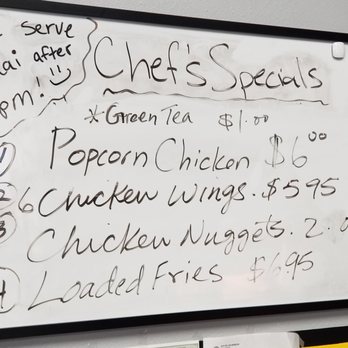 serve
after
pm!
Chef's Specials
*Green Tea $1.00
Popcorn Chicken $6.00
2 6 Chicken Wings. $5.95
3 Chicken Nuggets. 2.
4 Loaded Fries $6.95